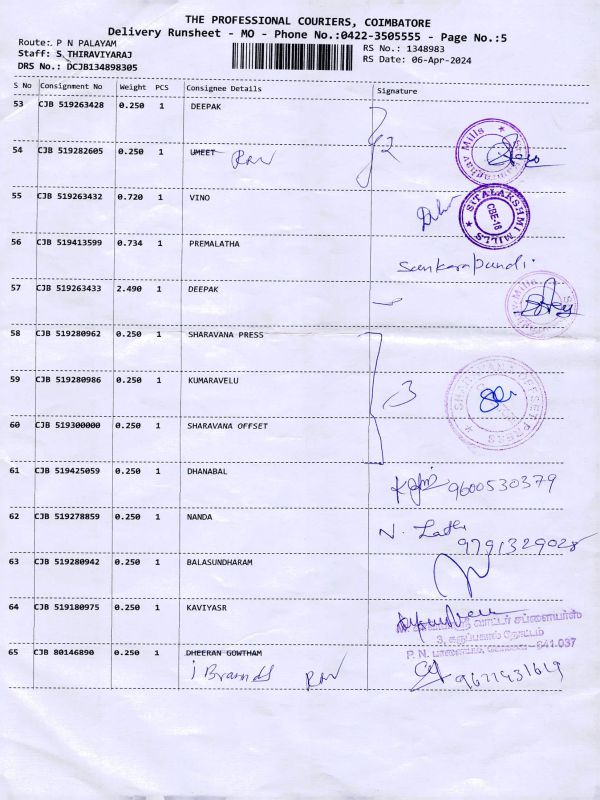 THE PROFESSIONAL COURIERS, COIMBATORE
Delivery Runsheet - MO - Phone No.:0422-3505555 - Page No.:5
Route: P N PALAYAM
RS No.: 1348983
Staff: S.THIRAVIYARAJ
RS Date: 06-Apr-2024
DRS No.: DCJB134898305
S No Consignment No Weight PCS Consignee Details Signature
53 CJB 519263428 0.250 1 DEEPAK
54 CJB 519282605 0.250 1 UMEET
55 CJB 519263432 0.720 1 VINO
SITALAKSHMI MILLS CBE-16
56 CJB 519413599 0.734 1 PREMALATHA
Sankarapandi
57 CJB 519263433 2.490 1 DEEPAK
58 CJB 519280962 0.250 1 SHARAVANA PRESS
59 CJB 519280986 0.250 1 KUMARAVELU
3
60 CJB 519300000 0.250 1 SHARAVANA OFFSET
61 CJB 519425059 0.250 1 DHANABAL
9600530379
62 CJB 519278859 0.250 1 NANDA
N. Latha
9791329028
63 CJB 519280942 0.250 1 BALASUNDHARAM
64 CJB 519180975 0.250 1 KAVIYASR
65 CJB 80146890 0.250 1 DHEERAN GOWTHAM
i Brands